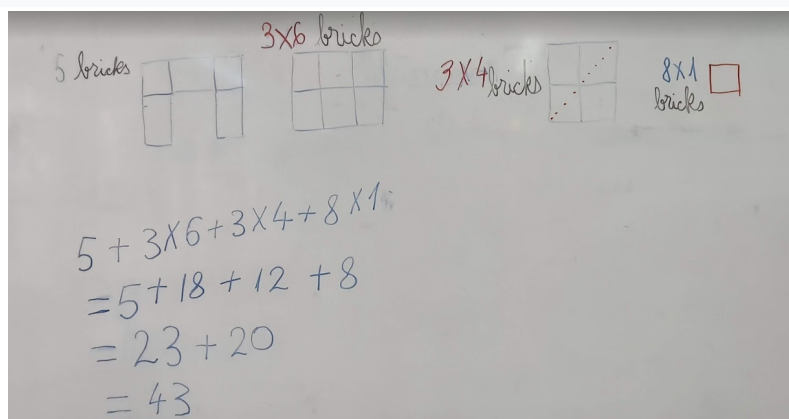 5 bricks
3x6 bricks
3x4 bricks
8x1
bricks
5 + 3x6+3x4+8x1
=5+18+12+8
=23+20
=43